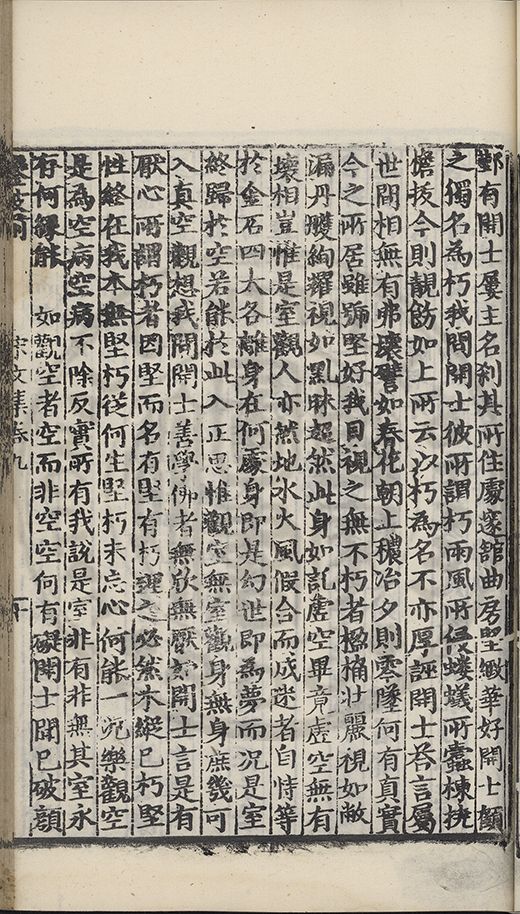 鄞有開士屢主名剎其所住處邃舘曲房堅緻華好開士顏
之獨名為朽我問開士彼所謂朽雨風所侵螻蟻所蠹棟撓
檐拔今則靚飭如上所云以朽為名不亦厚誣開士荅言屬
世間相無有弗壞譬如春花朝上穠冶夕則零墜何有真實
今之所居雖號堅好我目視之無不朽者楹桷壯麗視如敝
漏丹雘絢耀視如黑昧超然此身如託虛空畢竟虛空無有
壞相豈惟是室觀人亦然地水火風假合而成迷者自恃等
於金石四大各離身在何處身即是幻世即為夢而况是室
終歸於空若能於此入正思惟觀室無室觀身無身庶幾可
入真空觀想我聞開士善學佛者無欣無厭如開士言是有
厭心所謂朽者因堅而名有堅有朽理之必然木縱已朽堅
性終在我本無堅朽從何生堅朽未忘心何能一况樂觀空
是為空病空病不除反實所有我說是室非有非無其室永
存何緣能 如觀空者空而非空空何有礙開士聞已破顏
宗文集卷九 十